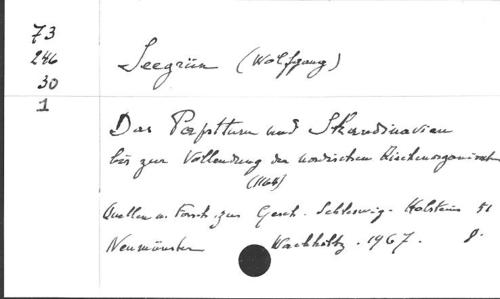 73
246
30
1
Seegrün (Wolfgang)
Das Papsttum und Skandinavien
bis zur Vollendung der nordischen Kirchenorganisation
(1164)
Quellen u. Forsch. zur Gesch. Schleswig-Holsteins 51
Neumünster Wachholtz. 1967. 8.